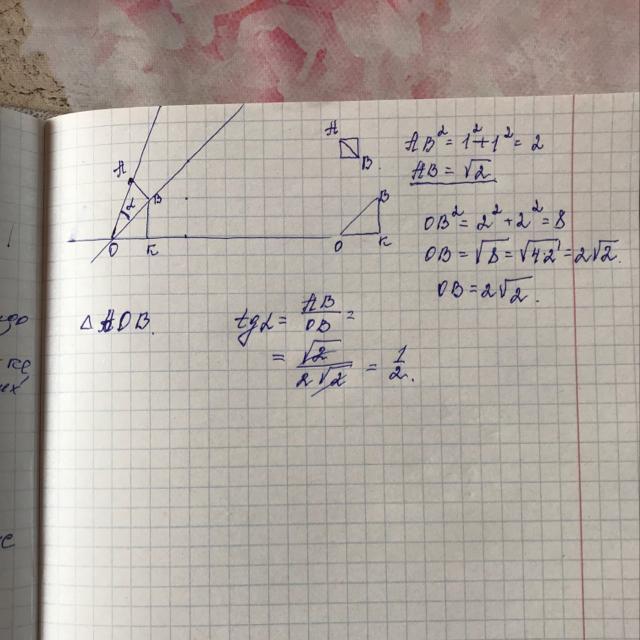 A
B
α
O
K
A
B
B
O
K
AB² = 1² + 1² = 2
AB = √2
OB² = 2² + 2² = 8
OB = √8 = √4·2 = 2√2.
OB = 2√2.
△ AOB.
tg α = AB/OB =
= √2/2√2 = 1/2.